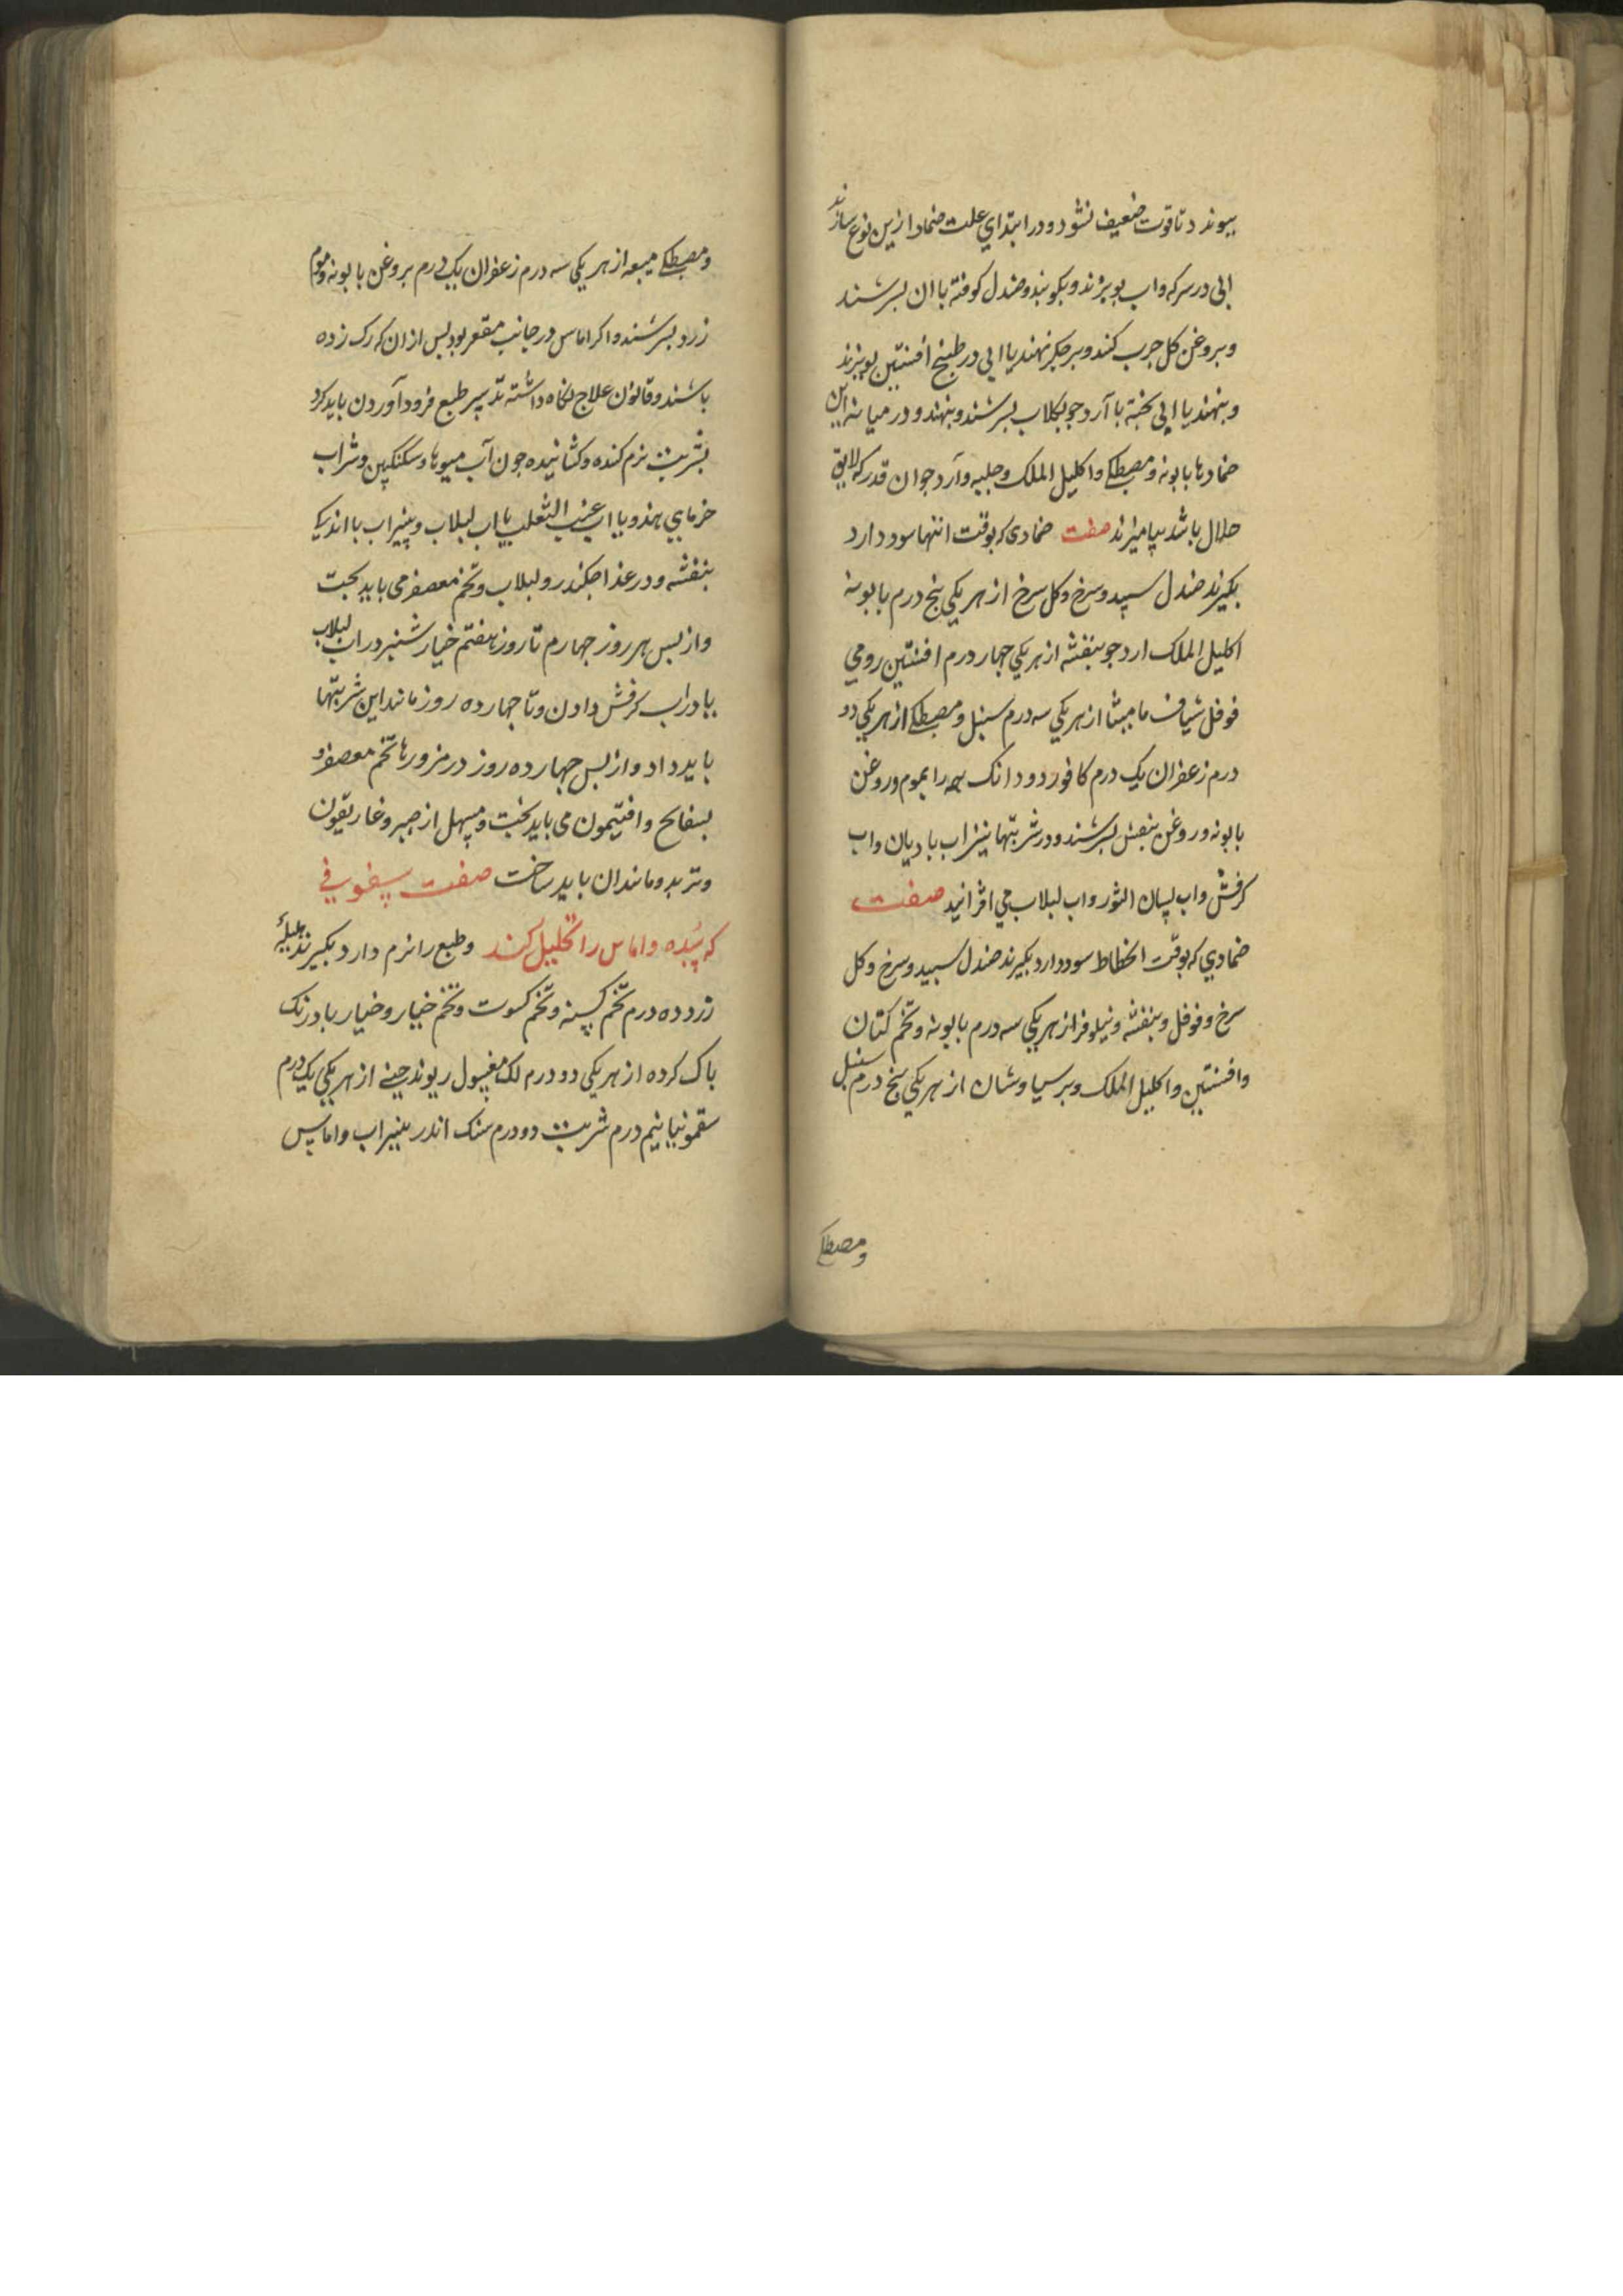 بیوندد تا قوت ضعیف نشود و در ابتدای علت ضماد ازین نوع سازند
ابی در سرکه و اب بوبزند و بکوبند و صندل کوفته با ان بسرشند
و بروغن کل جرب کنند و بر جکر نهند یا ابی در طبیخ افسنتین بوبزند
و بنهند یا ابی بخته با آرد جو بکلاب بسرشند و بنهند و در میانه این
ضمادها بابونه و مصطکے و اکلیل الملک و حلبه و آرد جو ان قدر که لایق
حلال باشد بیامیزند صفت ضمادی که بوقت انتها سود دارد
بکیرند صندل سپید و سرخ و کل سرخ از هر یکی بنج درم بابونه
اکلیل الملک ارد جو بنفشه از هر یکی جهار درم افسنتین رومی
فوفل شیاف مامیثا از هر یکی سه درم سنبل و مصطکے از هر یکی دو
درم زعفران یک درم کافور دو دانک همه را بموم و روغن
بابونه و روغن بنفش بسرشند و در شربتها نیز اب بادیان و اب
کرفش و اب لسان الثور و اب لبلاب می افزانید صفت
ضمادی که بوقت انحطاط سود دارد بکیرند صندل سبید و سرخ و کل
سرخ و فوفل و بنفشه و نیلوفر از هر یکی سه درم بابونه و تخم کتان
و افسنتین و اکلیل الملک و برسیاوشان از هر یکی بنج درم سنبل
و مصطکے
و مصطکے میعه از هر یکی سه درم زعفران یک درم بروغن بابونه و موم
زرد بسرشند و اکر اماس در جانب مقعر بود بس از ان که رک زده
باشند و قانون علاج نکاه داشته تدبیر طبع فرود آوردن باید کرد
بشربت نرم کننده و کشاینده جون آب میوها و سکنکبین و شراب
خرمای هندو یا اب عنب الثعلب یا اب لبلاب و بنیراب با اندیکی
بنفشه و در غذا جکندر و لبلاب و تخم معصفر می باید بخت
و از بس هر روز جهارم تا روز هفتم خیارشنبر در اب لبلاب
یا در اب کرفش دادن و تا جهارده روز مانند این شربتها
باید داد و از بس جهارده روز در مزورها تخم معصفر و
بسفایح و افتیمون می باید بخت و مسهل از صبر و غاریقون
و تربد و مانند ان باید ساخت صفت سفوفی
که سُده و اماس را تحلیل کند و طبع را نرم دارد بکیرند هلیلهٔ
زرد ده درم تخم کسنه و تخم کسوت و تخم خیار و خیار بادرنک
باک کرده از هر یکی دو درم لک مغسول ریوند جینے از هر یکی یک درم
سقمونیا نیم درم شربت دو درم سنک اندر بنیراب و اماس